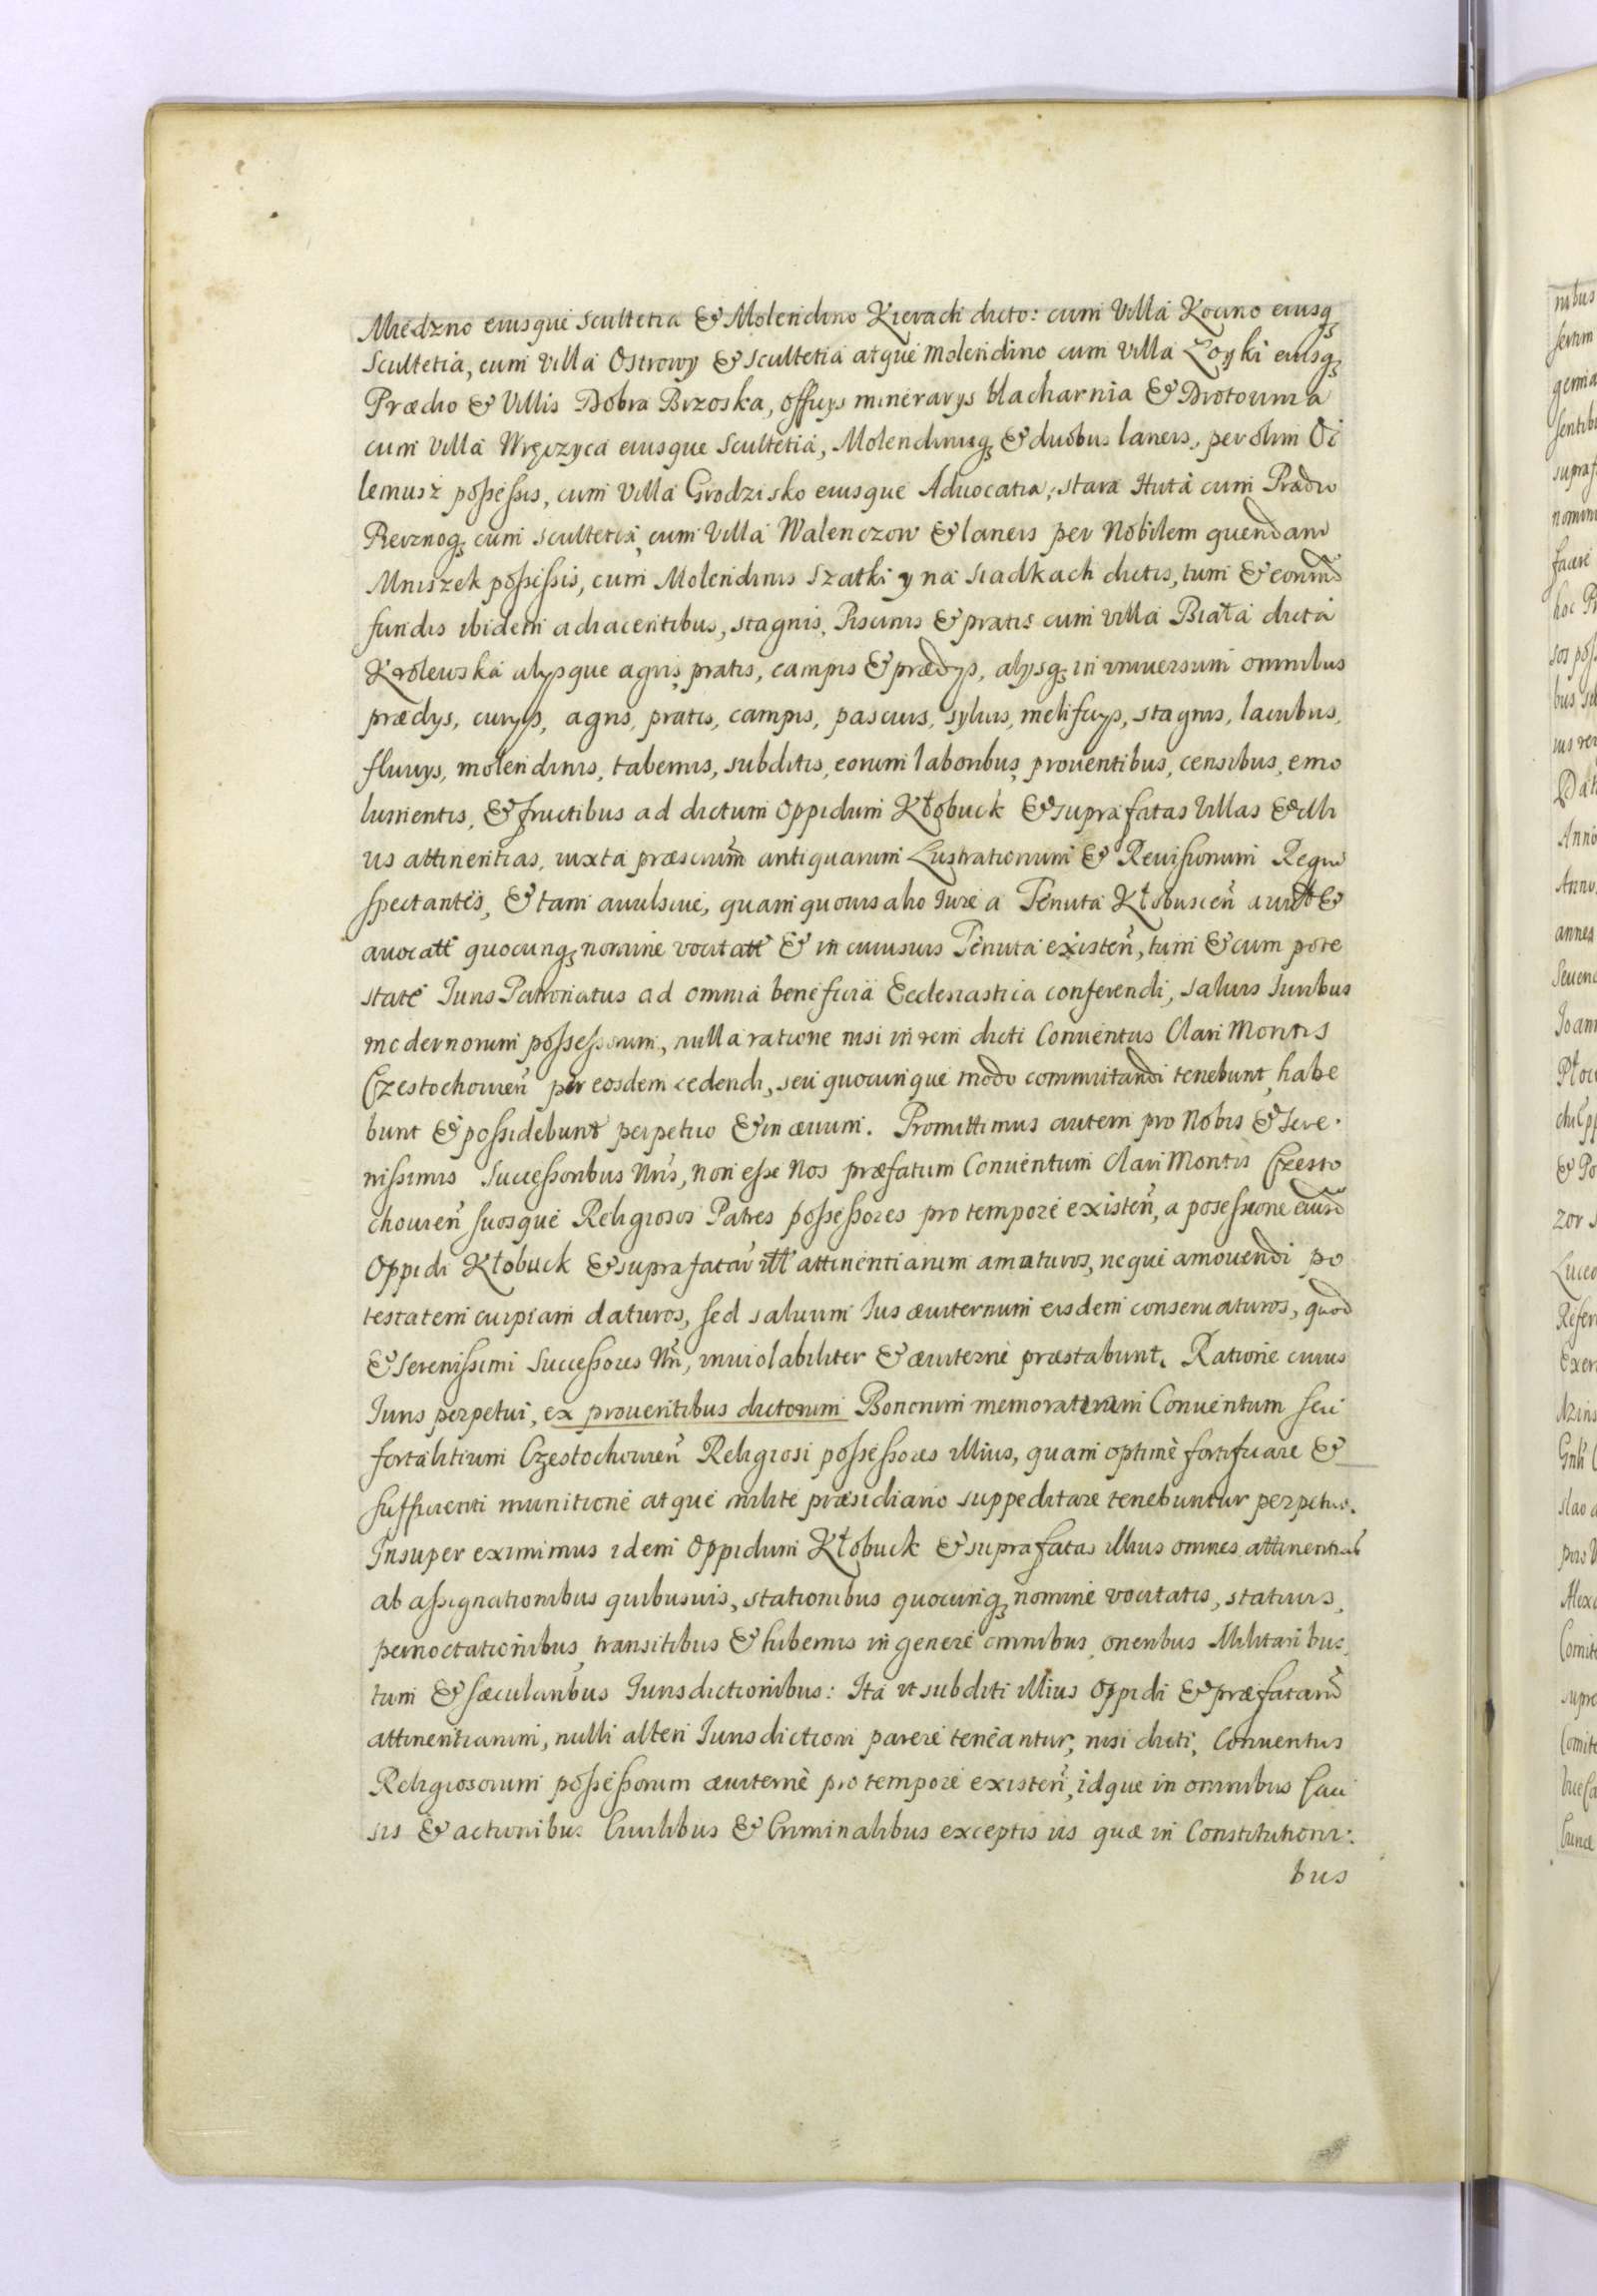 Miedzno eiusque Scultetia & Molendino Kierach dicto: cum Villa Kocino eiusq3
Scultetia, cum Villa Ostrowy & Scultetia atque Molendino cum Villa Łoyki eiusq3
Prædio & Villis Dobra Brzoska, officijs minerarys blacharnia & Drotownia
cum Villa Wręczyca eiusque Scultetia, Molendinisq3 & duobus laneis, per olim Oi
lemusz possessis, cum Villa Grodzisko eiusque Aduocatia, stara Huta cum Prædio
cum Scultetia, cum Villa Walenczow & laneis per Nobilem quendam
Mniszek possessis, cum Molendinis Szatki y na Siadkach dictis, tum & eorund
fundis ibidem adiacentibus, stagnis, Piscinis & pratis cum Villa Biała dicta
Krolewska alijsque agris, pratis, campis & prædijs, alijsq3 in vniuersum omnibus
prædijs, curijs, agris, pratis, campis, pascuis, syluis, melificijs, stagnis, lacubus,
fluuijs, molendinis, tabernis, subditis, eorum laboribus, prouentibus, censibus, emo
lumentis, & fructibus ad dictum Oppidum Kłobuck & suprafatas Villas & illi
us attinentias, iuxta præscium antiquarum Lustrationum & Reuisionum Regni
spectantes, & tam auulsiue, quam quouis alio Iure a Tenuta Kłobuscen
auocatt quocunq3 nomine vocitatt & in cuiusuis Tenuta existen, tum & cum pote
state Iuris Patronatus ad omnia beneficia Ecclesiastica conferendi, saluis Iuribus
modernorum possessorum, nulla ratione nisi in rem dicti Conuentus Clari Montis
Częstochouien per eosdem cedendi, seu quocunque modo commutandi tenebunt, habe
bunt & possidebunt perpetuo & in æuum. Promittimus autem pro Nobis & Sere
nissimis Successoribus Nris, non esse Nos præfatum Conuentum Clari Montis Czesto
chouien suosque Religiosos Patres possessores pro tempore existen, a possessione eiusd
Oppidi Kłobuck & suprafatar ill attinentiarum amoturos, neque amouendi po
testatem cuipiam daturos, sed saluum Ius æuiternum eisdem conseruaturos, quod
& Serenissimi Successores Nri, inuiolabiliter & æuiterne præstabunt. Ratione cuius
Iuris perpetui, ex prouentibus dictorum Bonorum memoratum Conuentum seu
fortalitium Częstochouien Religiosi possessores illius, quam optime fortificare &
sufficienti munitione atque milite præsidiario suppeditare tenebuntur perpetuo.
Insuper eximimus idem Oppidum Kłobuck & suprafatas illius omnes attinentias
ab assignationibus quibusuis, stationibus quocunq3 nomine vocitatis, statiuis,
pernoctationibus, transitibus & hibernis in genere omnibus, oneribus Militaribus,
tum & sæcularibus Iurisdictionibus: Ita vt subditi illius Oppidi & præfatarū
attinentiarum, nulli alteri Iurisdictioni parere teneantur, nisi dicti, Conuentus
Religiosorum possessorum æuiterne pro tempore existen, idque in omnibus Cau
sis & actionibus Ciuilibus & Criminalibus exceptis iis quæ in Constitutioni:
bus